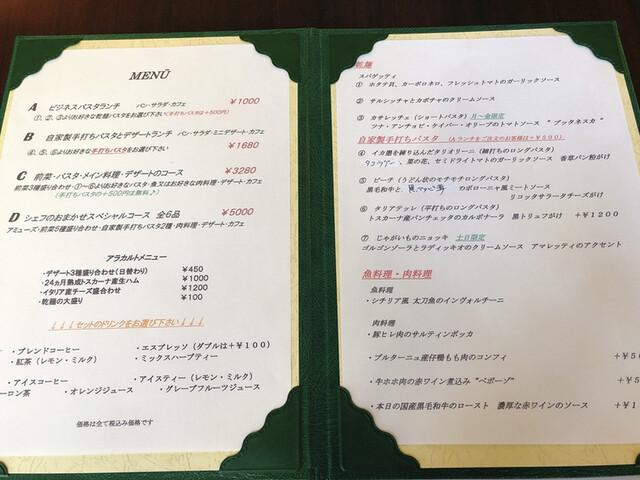 MENŪ
A ビジネスパスタランチ パン・サラダ・カフェ ¥1000
①、②、③よりお好きな乾麺パスタをお選び下さい(手打ちパスタは+500円)
B 自家製手打ちパスタとデザートランチ パン・サラダ・ミニデザート・カフェ
④、⑤、⑥よりお好きな手打ちパスタをお選び下さい ¥1680
C 前菜・パスタ・メイン料理・デザートのコース ¥3280
前菜3種盛り合わせ・①~⑥よりお好きなパスタ・魚又はお好きな肉料理・デザート・カフェ
(手打ちパスタの+500円は無料♪)
D シェフのおまかせスペシャルコース 全6品 ¥5000
アミューズ・前菜5種盛り合わせ・自家製手打ちパスタ2種・肉料理・デザート・カフェ
アラカルトメニュー
・デザート3種盛り合わせ(日替わり) ¥450
・24ヵ月熟成トスカーナ産生ハム ¥1000
・イタリア産チーズ盛合わせ ¥1200
・乾麺の大盛り ¥100
↓↓↓セットのドリンクをお選び下さい↓↓↓
・ブレンドコーヒー ・エスプレッソ(ダブルは+¥100)
・紅茶(レモン・ミルク) ・ミックスハーブティー
・アイスコーヒー ・アイスティー(レモン・ミルク)
ーロン茶 ・オレンジジュース ・グレープフルーツジュース
価格は全て税込み価格です
乾麺
スパゲッティ
① ホタテ貝、カーボロネロ、フレッシュトマトのガーリックソース
② サルシッチャとカボチャのクリームソース
③ カサレッチェ(ショートパスタ) 月~金限定
ツナ・アンチョビ・ケイパー・オリーブのトマトソース "プッタネスカ"
自家製手打ちパスタ (Aランチをご注文のお客様は+¥500)
④ イカ墨を練り込んだタリオリーニ(細打ちのロングパスタ)
菜の花、セミドライトマトのガーリックソース 香草パン粉がけ
⑤ ピーチ(うどん状のモチモチロングパスタ)
黒毛和牛と のボローニャ風ミートソース
リコッタサラータチーズがけ
⑥ タリアテッレ(平打ちのロングパスタ)
トスカーナ産パンチェッタのカルボナーラ 黒トリュフがけ +¥1200
⑦ じゃがいものニョッキ 土日限定
ゴルゴンゾーラとラディッキオのクリームソース アマレッティのアクセント
魚料理・肉料理
魚料理
・シチリア風 太刀魚のインヴォルティーニ
肉料理
・豚ヒレ肉のサルティンボッカ
・ブルターニュ産仔鴨もも肉のコンフィ +¥5
・牛ホホ肉の赤ワイン煮込み "ペポーゾ" +¥5
・本日の国産黒毛和牛のロースト 濃厚な赤ワインのソース +¥1